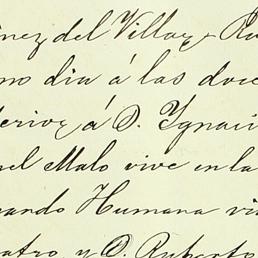 inez del Villar y Ru
mo dia á las doce
terior á D. Ygnaci
uel Malo vive en la
nando Humana vi
eatro, y D. Ruperto